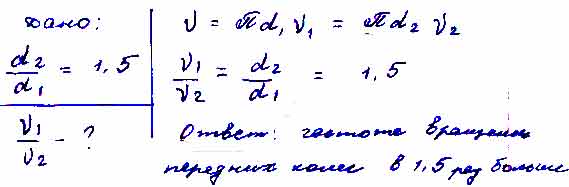 дано:
d₂/d₁ = 1,5
ν₁/ν₂ - ?
υ = πd₁ν₁ = πd₂ν₂
ν₁/ν₂ = d₂/d₁ = 1,5
Ответ: частота вращения
передних колес в 1,5 раз больше